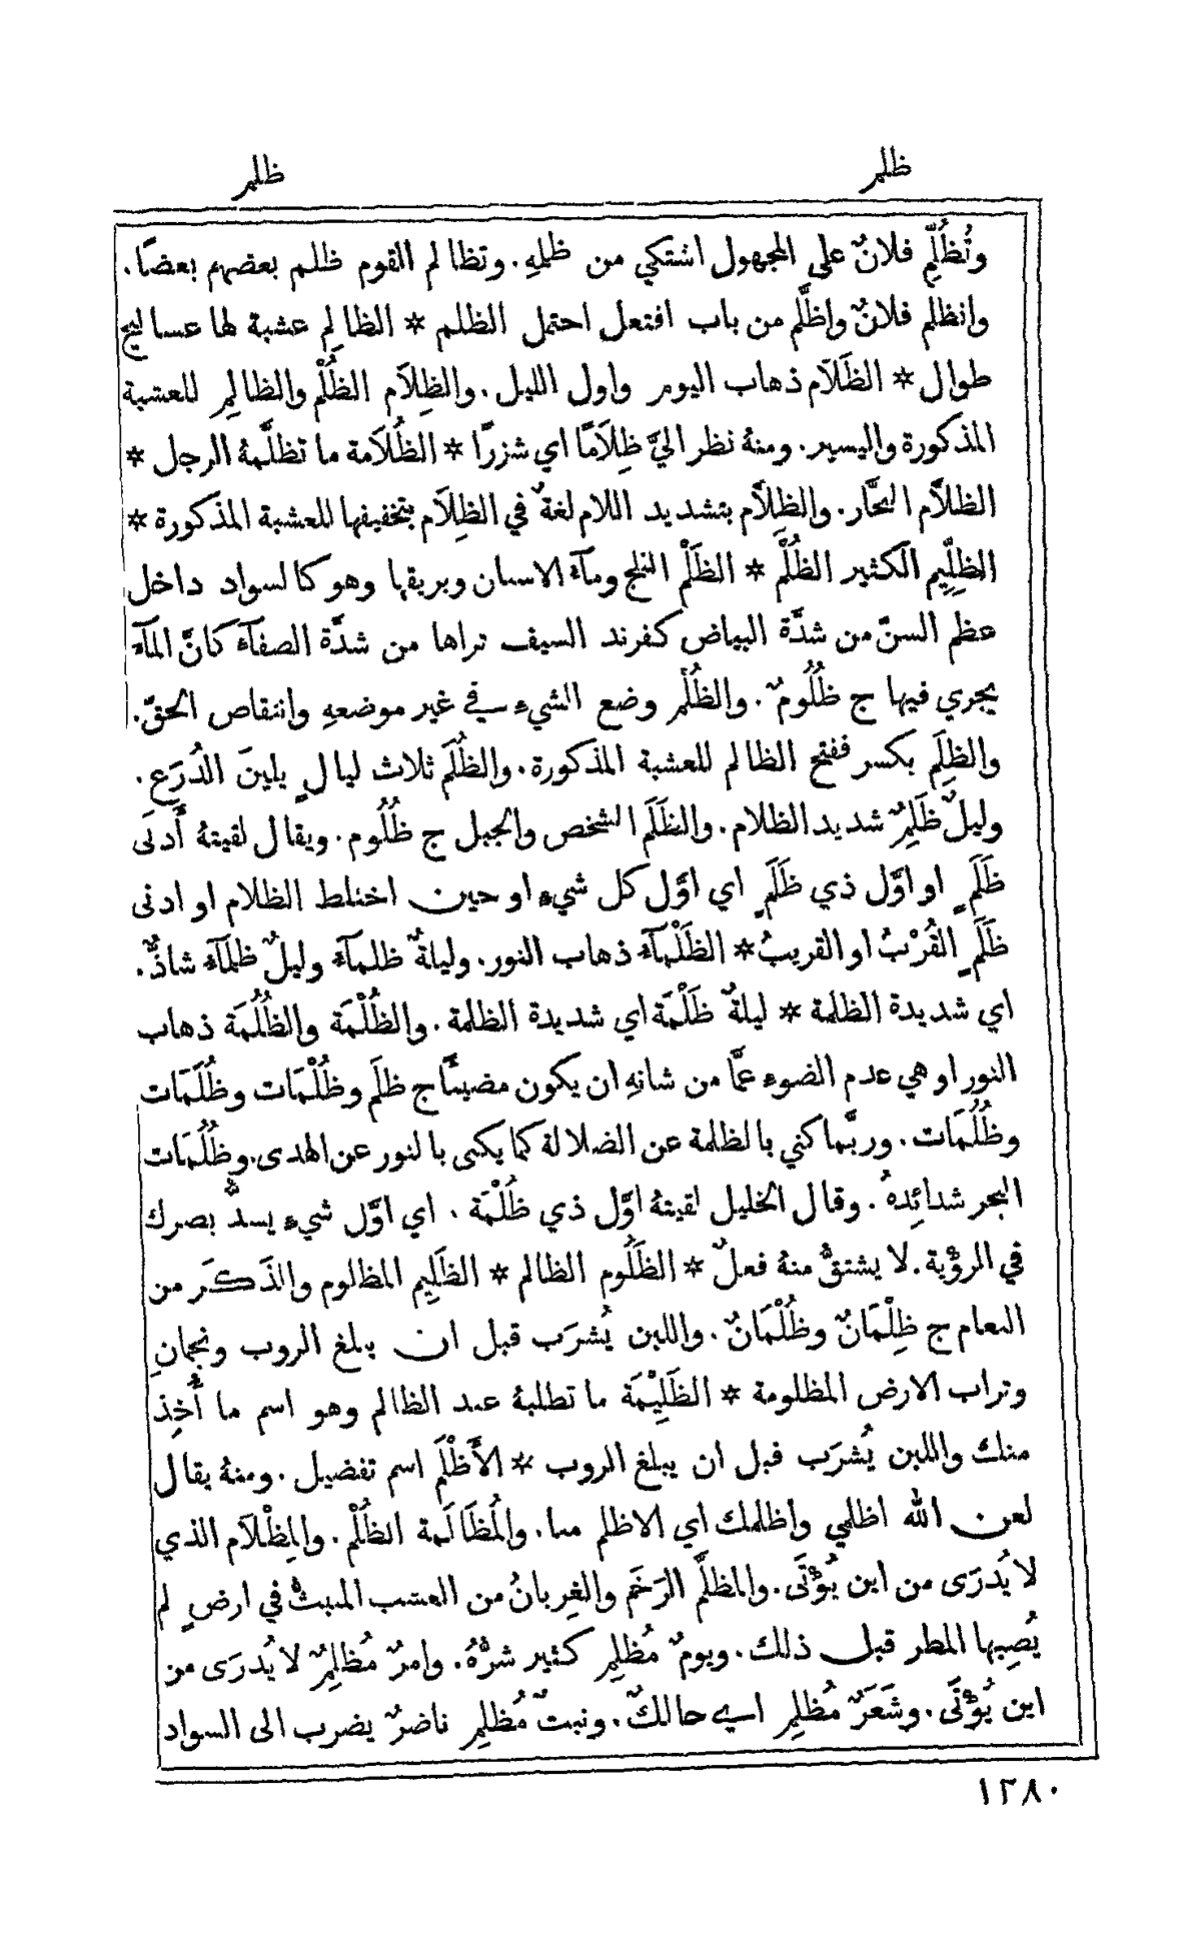 ظلم ظلم
وتُظُلِّم فلانٌ على المجهول اشتكي من ظلمهِ. وتظالم القوم ظلم بعضهم بعضًا.
وانظلم فلانٌ واظَّلم من باب افتعل احتمل الظلم * الظالِم عشبة لها عساليج
طوال * الظَلاَم ذهاب اليوم واول الليل. والظِلاَم الظُلْم والظالِم للعشبة
المذكورة واليسير. ومنهُ نظر اليَّ ظِلاَمًا اي شزرًا * الظُلاَمة ما تظلَّمهُ الرجل *
الظلاَّم النحَّار. والظِلاَّم بتشديد اللام لغةٌ في الظِلاَم بتخفيفها للعشبة المذكورة *
الظِلِّيم الكثير الظُلْم * الظَلْم الثلج ومآءَ الاسنان وبريقها وهو كالسواد داخل
عظم السنّ من شدَّة البياض كفرند السيف تراها من شدَّة الصفآءَ كانَّ المآءَ
يجري فيها ج ظُلُومٌ. والظُلْم وضع الشيءِ في غير موضعهِ وانتقاص الحقّ.
والظِلَم بكسر ففتح الظالم للعشبة المذكورة. والظُلَم ثلاث ليالٍ يلينَ الدُرَع.
وليلٌ ظَلِمٌ شديد الظلام. والظَلَم الشخص والجبل ج ظُلُوم. ويقال لقيتهُ أَدنَى
ظَلَمٍ او اوَّل ذي ظَلَمٍ اي اوَّل كل شيءٍ او حين اختلط الظلام او ادنى
ظَلَمٍ القُرْبُ او القريبُ * الظَلْمآءَ ذهاب النور. وليلةٌ ظلمآءَ وليلٌ ظلمآءَ شاذٌّ.
اي شديدة الظلمة * ليلةٌ ظَلْمَة اي شديدة الظلمة. والظُلْمَة والظُلُمَة ذهاب
النور او هي عدم الضوءِ عمَّا من شانهِ ان يكون مضيئًا ج ظلَم وظُلْمَات وظُلَمَات
وظُلُمَات. وربَّما كني بالظلمة عن الضلالة كما يكنى بالنور عن الهدى. وظُلُمَات
البحر شدائِدهُ. وقال الخليل لقيتهُ اوَّل ذي ظُلْمَة. اي اوَّل شيءٍ يسدُّ بصرك
في الرؤْية. لا يشتقُّ منهُ فعلٌ * الظَلُوم الظالم * الظَلِيم المظلوم والذَكَر من
النعام ج ظِلْمَانٌ وظُلْمَانٌ. واللبن يُشرَب قبل ان يبلغ الروب ونجمانِ
وتراب الارض المظلومة * الظَلِيْمَة ما تطلبهُ عند الظالم وهو اسم ما أُخِذ
منك واللبن يُشرَب قبل ان يبلغ الروب * الأَظْلَم اسم تفضيل. ومنهُ يقال
لعن الله اظلمي واظلمك اي الاظلم منا. والمُظَالَمة الظُلْم. والمِظْلاَم الذي
لا يُدرَى من اين يُؤْتَى. والمظلَّم الرَخَم والغِربانُ من العشب المنبثُّ في ارضٍ لم
يُصِبها المطر قبل ذلك. ويومٌ مُظلِم كثير شرُّهُ. وامرٌ مُظلِمٌ لا يُدرَى من
اين يُؤْتَى. وشَعَرٌ مُظلِم اي حالكٌ. ونبتٌ مُظلِم ناضرٌ يضرب الى السواد
١٢٨٠